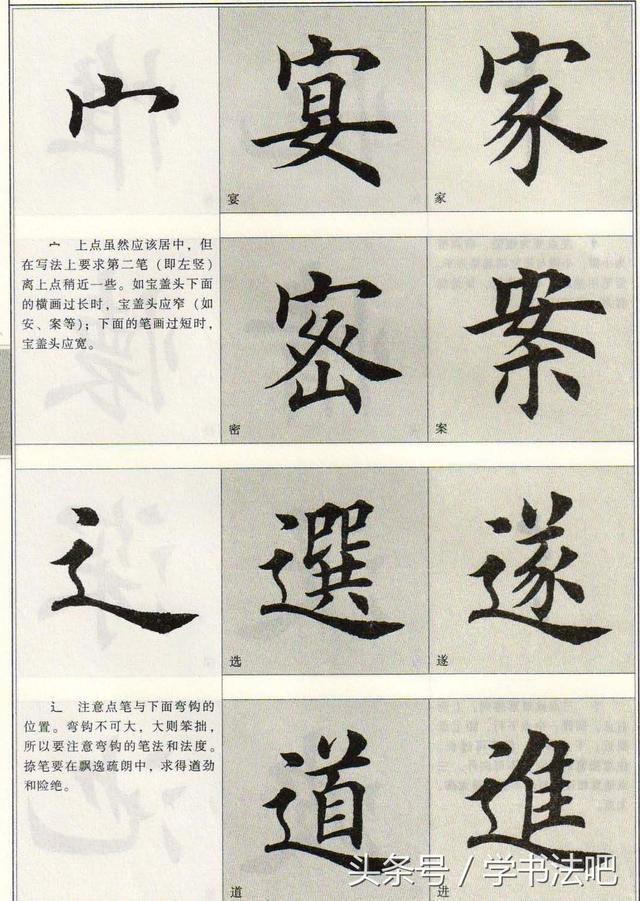 宀
宴
宴
家
家
宀 上点虽然应该居中，但
在写法上要求第二笔（即左竖）
离上点稍近一些。如宝盖头下面
的横画过长时，宝盖头应窄（如
安、案等）；下面的笔画过短时，
宝盖头应宽。
密
密
案
案
辶
選
选
遂
遂
辶 注意点笔与下面弯钩的
位置。弯钩不可大，大则笨拙，
所以要注意弯钩的笔法和法度。
捺笔要在飘逸疏朗中，求得遒劲
和险绝。
道
道
進
进
头条号 / 学书法吧